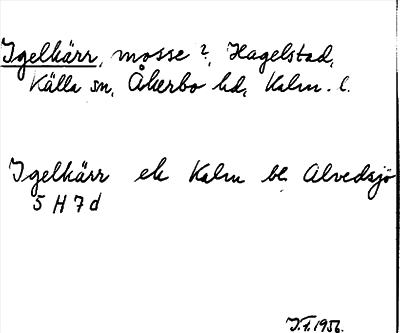 Igelkärr, mosse?, Hagelstad,
Källa sn, Åkerbo hd, Kalm. l.
Igelkärr ek Kalm bl. Alvedsjö
5 H 7 d
J.F. 1956.